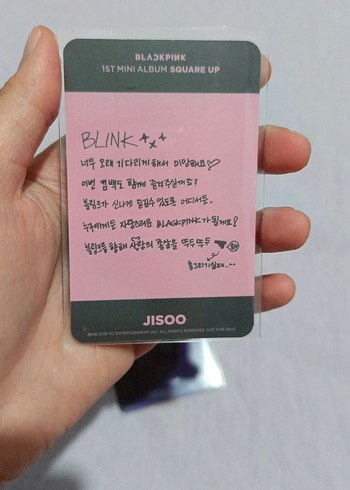 BLACKPINK
1ST MINI ALBUM SQUARE UP
BLINK
너무 오래 기다리게해서 미안해요♡
이번 컴백도 함께 즐겨주실꺼죠?
블링크가 신나게 즐길수 있도록 어디서든,
누구에게든 자랑스러운 BLACKPINK가 될게요!
블링크를 향해 사랑의 총알을 뚜두뚜두
총그리기실패..
JISOO